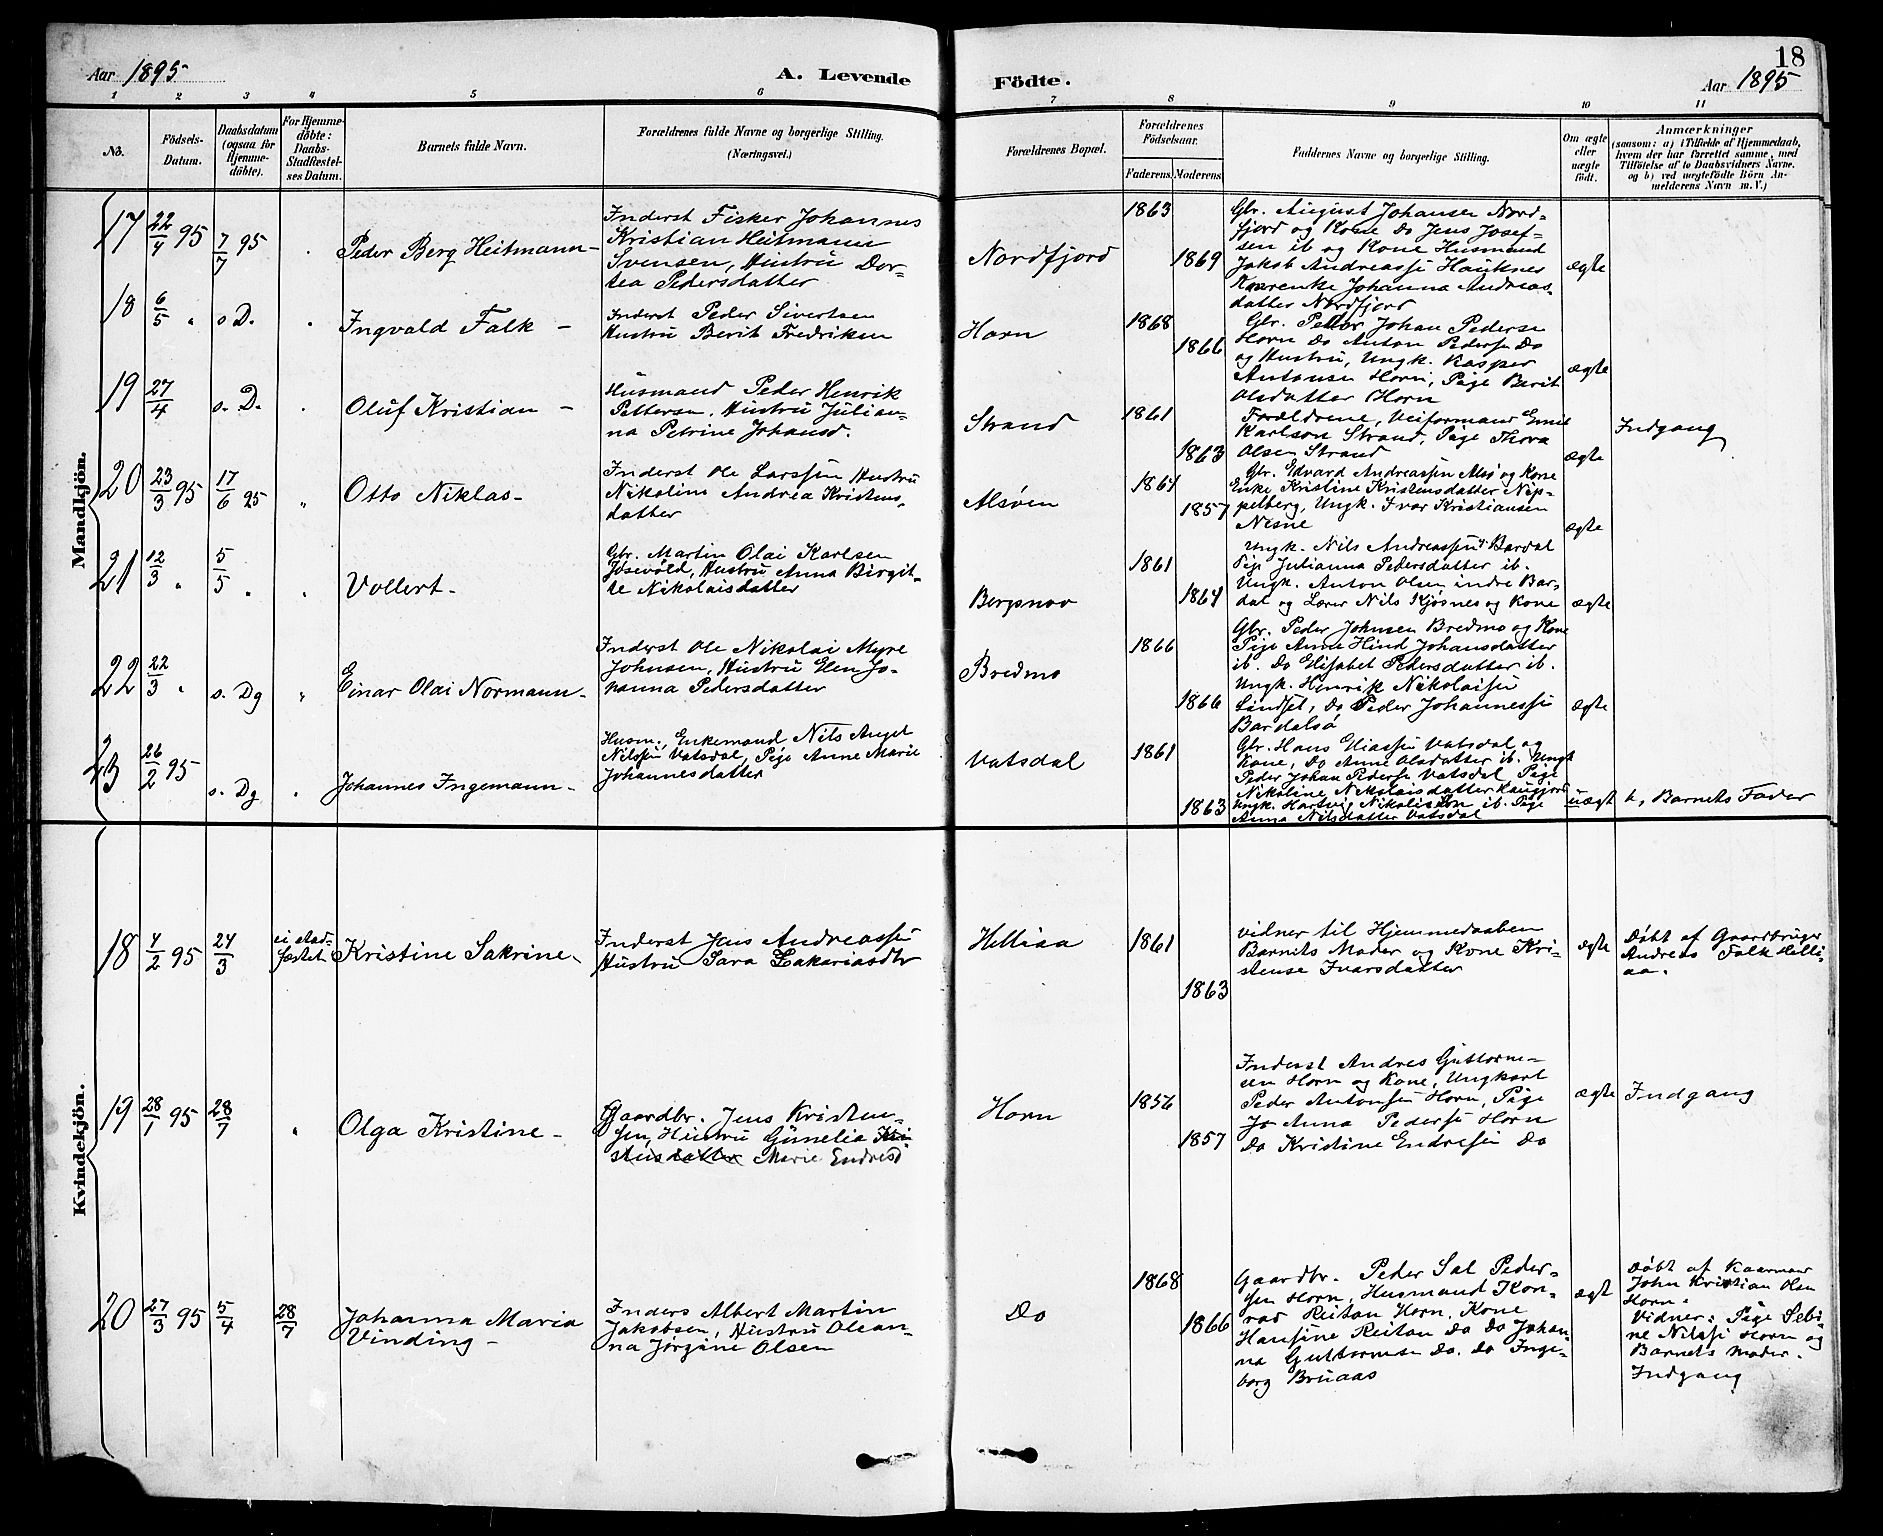 18
Aar 1895
A. Levende
Födte.
Aar 1895
1 2 3 4 5 6 7 8 9 10 11
No.
Födsels-
Datum.
Daabsdatum
(ogsaa for
Hjemme-
döbte).
For Hjemme-
döbte:
Daabs-
Stadfæstel-
ses Datum.
Barnets fulde Navn.
Forældrenes fulde Navne og borgerlige Stilling.
(Næringsvei.)
Forældrenes Bopæl.
Forældrenes
Födselsaar.
Faderens. Moderens.
Faddernes Navne og borgerlig Stilling.
Om ægte
eller
uægte
født.
Anmærkninger
(saasom: a) i Tilfælde af Hjemmedaab,
hvem der har forrettet samme, med
Tilföielse af to Daabsvidners Navne.
og b) ved uægtefödte Börn An-
melderens Navn m. V.)
Mandkjön.
17
22/4 95
7/7 95
Peder Berg Heitmann-
Inderst Fisker Johannes
Kristian Heitmann
Svensen, Hustru Dor-
tea Pedersdatter
Nordfjord
1863
1869
Gbr. August Johansen Nord-
fjord og Kone Do Jens Josef-
sen ib og Kone Husmand
Jakob Andreassen Hauknes
Johanna Andreas-
datter Nordfjord
ægte
18
6/5 "
s D.
Ingvald Falk -
Inderst Peder Sivertsen
Hustru Berit Fredriksen
Horn
1868
1866
Gbr. Peder Johan Pedersen
Horn Do Anton Pedersen Do
og Hustru, Ungk. Kasper
Antonsen Horn, Pige Berit
Olsdatter Horn
ægte
19
27/4
s. D.
Oluf Kristian -
Husmand Peder Henrik
Pettersen, Hustru Julian-
na Petrine Johansd.
Strand
1861
1863
Forældrene, Veiformand Emil
Karlson Strand, Pige Thora
Olsen Strand
ægte
Indgang
20
23/3 95
17/6 95
"
Otto Niklas-
Inderst Ole Larssen Hustru
Nikoline Andrea Kristens-
datter
Alsøen
1864
1857
Gbr. Edvard Andreassen Alsø og Kone
Enke Kristine Kristensdatter Nip-
pelberg, Ungk. Ivar Kristiansen
Nesne
ægte
21
12/3 "
5/5 "
"
Vollert-
Gbr. Martin Olai Karlsen
Jøsevold, Hustru Anna Birgit-
te Nikolaisdatter
Bergsnov
1861
1864
Ungk. Nils Andreassen Bardal
Pige Julianna Pedersdatter ib.
Ungk. Anton Olsen indre Bar-
dal og Lærer Nils Kjøsnes og Kone
ægte
22
22/3 "
s. Dg
"
Einar Olai Normann-
Inderst Ole Nikolai Myre
Johnsen, Hustru Elen Jo-
hanna Pedersdatter
Bredmo
1866
1866
Gbr. Peder Johnsen Bredmo og Kone
Pige Anne Hind Johansdatter
ib. Do Elisabet Pedersdatter ib.
Ungk. Henrik Nikolaisen
Lindset, Do Peder Johannessen
Bardalsø
ægte
23
26/2 95
s. Dg
Johannes Ingemann-
Husm., Enkemand Nils Angel
Nilssen Vatsdal, Pige Anne Marie
Johannesdatter
Vatsdal
1861
1863
Gbr. Hans Eliassen Vatsdal og
Kone, Do Anne Olsdatter ib. Ungk
Peder Johan Pedersen Vatsdal, Pige
Nikoline Nikolaisdatter
Ungk. Hartvig Nikolaisen ib. Pige
Anna Nilsdatter Vatsdal
uægt
b, Barnets Fader
Kvindekjön.
18
4/2 95
24/3
ei stad-
fæstet
Kristine Sakrine-
Inderst Jens Andreassen
Hustru Sara Zakariasdtr
Hellaa
1861
1863
vidner til Hjemmedaaben
Barnets Moder og Kone Kri-
stense Ivarsdatter
ægte
Døbt af Gaardbruger
Andreas Falk Helli-
aa.
19
28/1 95
28/7
"
Olga Kristine-
Gaardbr. Jens Kristen-
sen, Hustru Gunelia Kri
stensdatter Marie Endresd
Horn
1856
1857
Inderst Andres Guttorm-
sen Horn og Kone, Ungkarl
Peder Antonsen Horn, Pige
Jo Anna Pedersen Horn
Do Kristine Endresen Do
ægte
Indgang
20
27/3 95
5/4
28/7
Johanna Maria
Vinding-
Inders Albert Martin
Jakobsen, Hustru Olean-
na Jørgine Olsen
Do
1868
1866
Gaardbr. Peder Sal Peder-
sen Horn, Husmand Kon-
rad Reitan Horn, Kone
Hansine Reitan Do Do Johan-
na Guttormsen Do. Do Inge-
borg Bruaas
ægt
Døbt af Kaarmand
John Kristian Olsen
Horn.
Vidner: Pige Sebi-
ne Nilssen Horn og
Barnets Moder.
Indgang